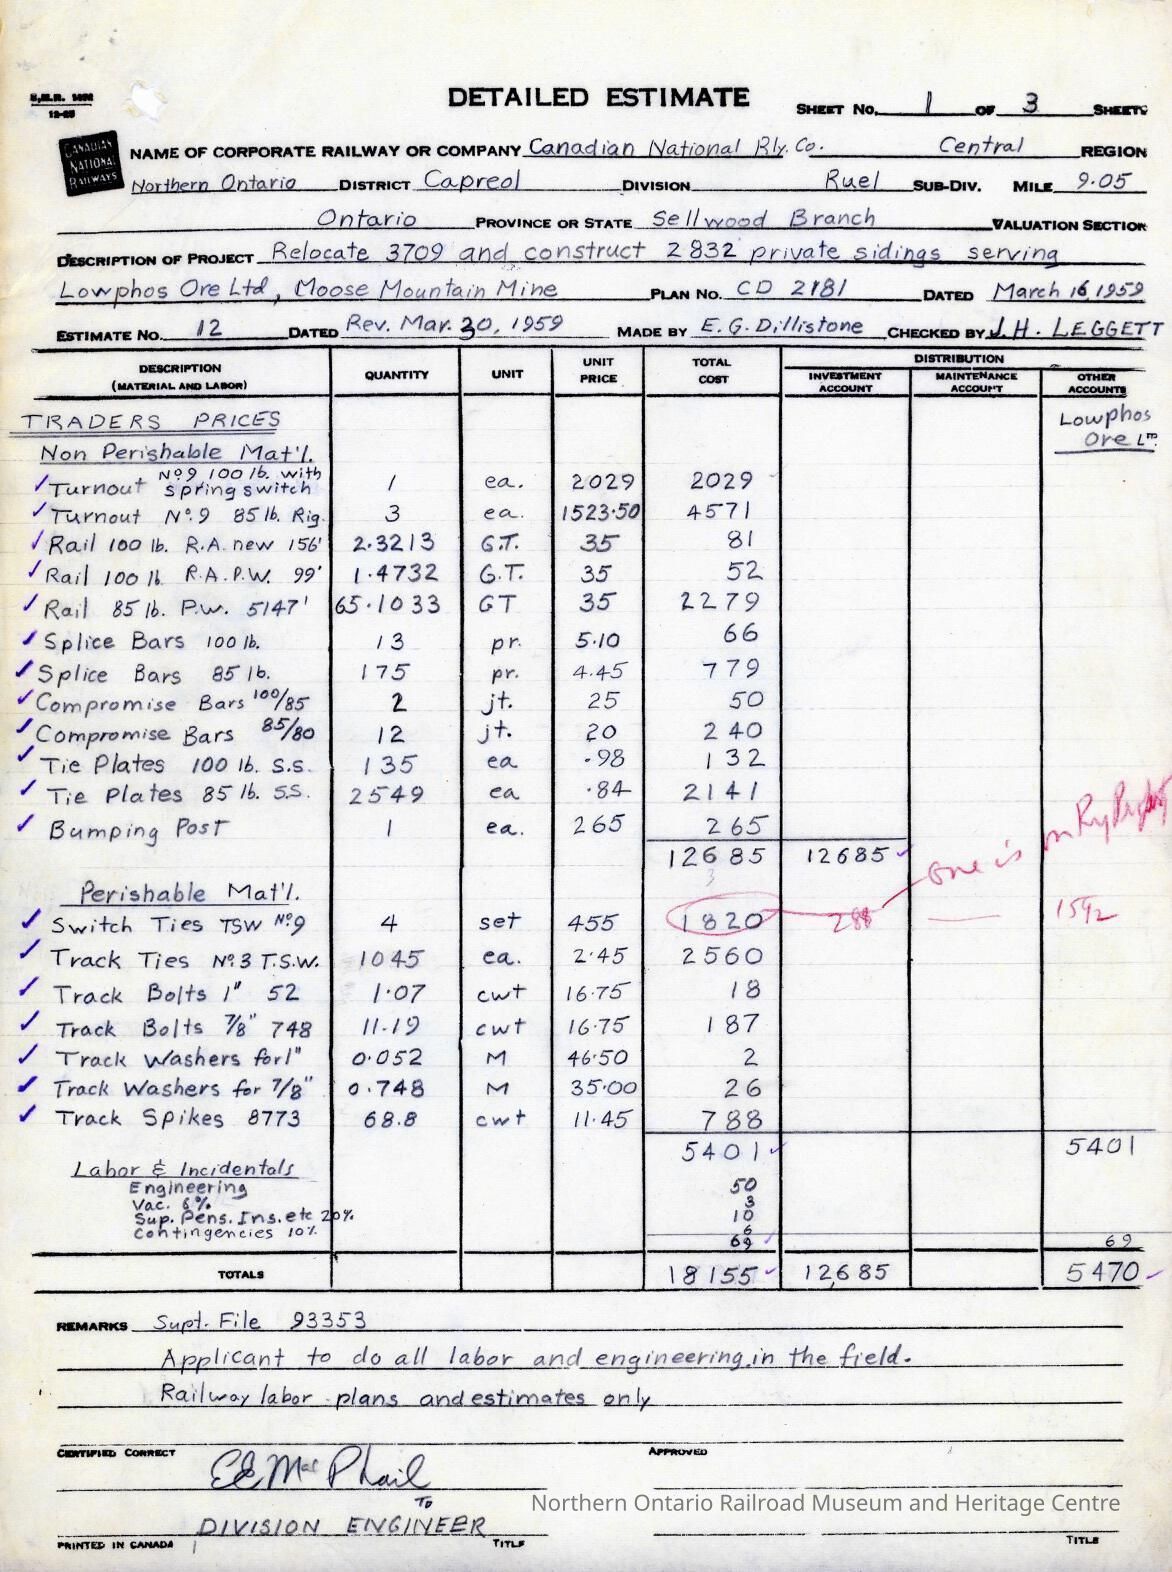 E.M.R. 1498
12-55
DETAILED ESTIMATE
SHEET No. 1 OF 3 SHEETS
CANADIAN NATIONAL RAILWAYS
NAME OF CORPORATE RAILWAY OR COMPANY Canadian National Rly. Co. Central REGION
Northern Ontario DISTRICT Capreol DIVISION Ruel SUB-DIV. MILE 9.05
Ontario PROVINCE OR STATE Sellwood Branch VALUATION SECTION
DESCRIPTION OF PROJECT Relocate 3709 and construct 2832 private sidings serving
Lowphos Ore Ltd, Moose Mountain Mine PLAN No. CD 2181 DATED March 16, 1959
ESTIMATE No. 12 DATED Rev. Mar. 30, 1959 MADE BY E.G. Dillistone CHECKED BY J.H. LEGGETT
DESCRIPTION (MATERIAL AND LABOR) QUANTITY UNIT UNIT PRICE TOTAL COST DISTRIBUTION
INVESTMENT ACCOUNT MAINTENANCE ACCOUNT OTHER ACCOUNTS
TRADERS PRICES Lowphos Ore Ltd.
Non Perishable Mat'l.
Turnout No 9 100 lb. with spring switch 1 ea. 2029 2029
Turnout No. 9 85 lb. Rig. 3 ea. 1523.50 4571
Rail 100 lb. R.A. new 156' 2.3213 G.T. 35 81
Rail 100 lb R.A. P.W. 99' 1.4732 G.T. 35 52
Rail 85 lb. P.W. 5147' 65.1033 GT 35 2279
Splice Bars 100 lb. 13 pr. 5.10 66
Splice Bars 85 lb. 175 pr. 4.45 779
Compromise Bars 100/85 2 jt. 25 50
Compromise Bars 85/80 12 jt. 20 240
Tie Plates 100 lb. S.S. 135 ea .98 132
Tie Plates 85 lb. S.S. 2549 ea .84 2141
Bumping Post 1 ea. 265 265
12685 12685
one is on Ry
3
Perishable Mat'l.
Switch Ties TSW No 9 4 set 455 1820 288 1592
Track Ties No. 3 T.S.W. 1045 ea. 2.45 2560
Track Bolts 1" 52 1.07 cwt 16.75 18
Track Bolts 7/8" 748 11.19 cwt 16.75 187
Track Washers for 1" 0.052 M 46.50 2
Track Washers for 7/8" 0.748 M 35.00 26
Track Spikes 8773 68.8 cwt 11.45 788
5401 5401
Labor & Incidentals
Engineering 50
Vac. 6% 3
Sup. Pens. Ins. etc 20% 10
Contingencies 10% 6
69 69
TOTALS 18155 12,685 5470
REMARKS Supt. File 93353
Applicant to do all labor and engineering in the field.
Railway labor - plans and estimates only
CERTIFIED CORRECT APPROVED
Mac Phail
To
DIVISION ENGINEER
TITLE TITLE
Northern Ontario Railroad Museum and Heritage Centre
PRINTED IN CANADA